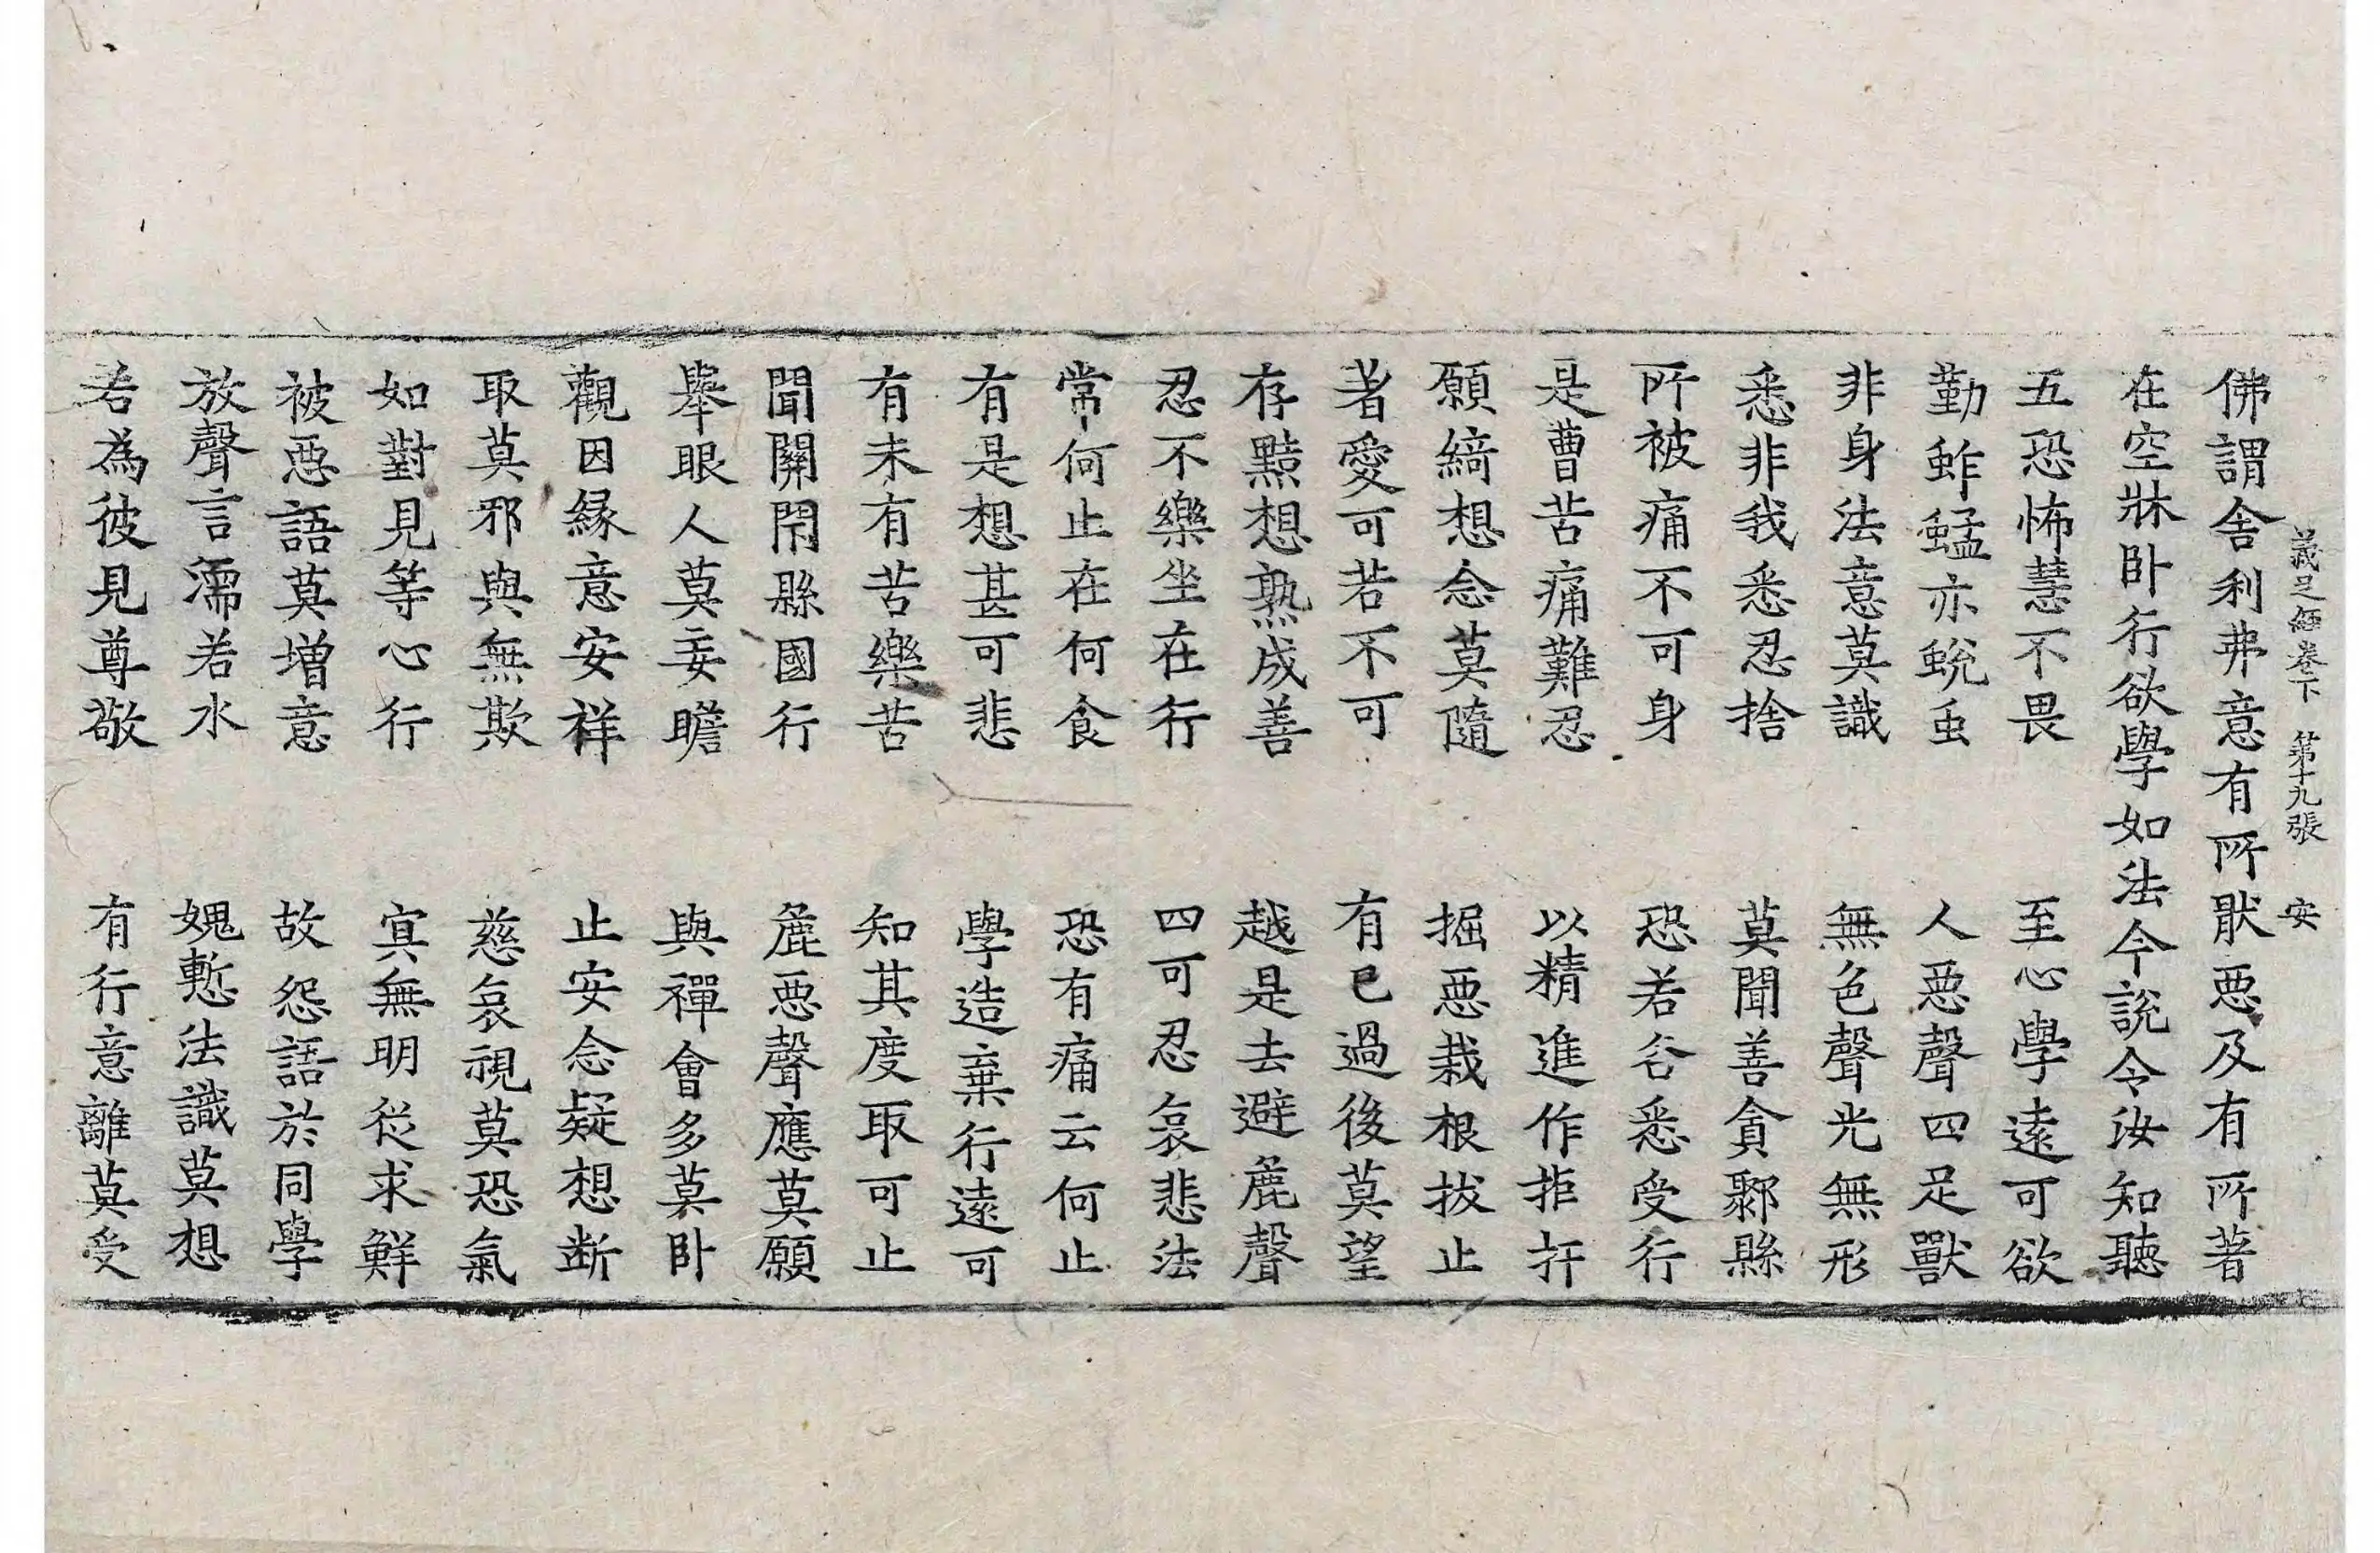 義足經卷下 第十九張 安
佛謂舍利弗意有所猒惡及有所著
在空牀卧行欲學如法今說令汝知聽
五恐怖慧不畏 至心學遠可欲
勤蚱蜢亦蛻虫 人惡聲四足獸
非身法意莫識 無色聲光無形
悉非我悉忍捨 莫聞善貪鄹縣
所被痛不可身 恐若各悉受行
是曹苦痛難忍 以精進作拒扞
願綺想念莫隨 掘惡栽根拔止
著愛可若不可 有已過後莫望
存黠想熟成善 越是去避麁聲
忍不樂坐在行 四可忍哀悲法
常何止在何食 恐有痛云何止
有是想甚可悲 學造棄行遠可
有未有苦樂苦 知其度取可止
聞關閇縣國行 麁惡聲應莫願
舉眼人莫妄瞻 與禪會多莫卧
觀因緣意安祥 止安念疑想断
取莫邪與無欺 慈哀視莫恐氣
如對見等心行 寘無明從求鮮
被惡語莫增意 故怨語於同學
放聲言濡若水 媿慙法識莫想
若為彼見尊敬 有行意離莫受